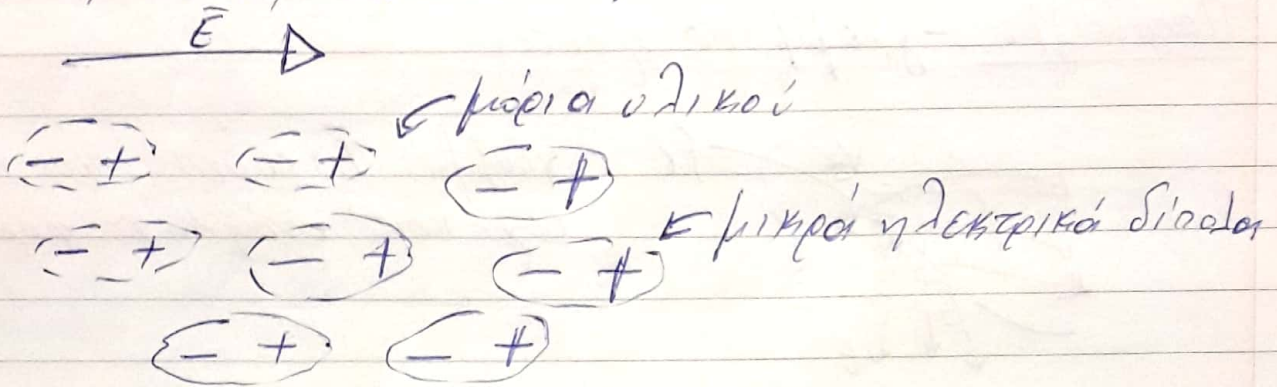 Ē
μόρια υλικού
- + - + - +
μικρά ηλεκτρικά δίπολα
- + - + - +
- + - +